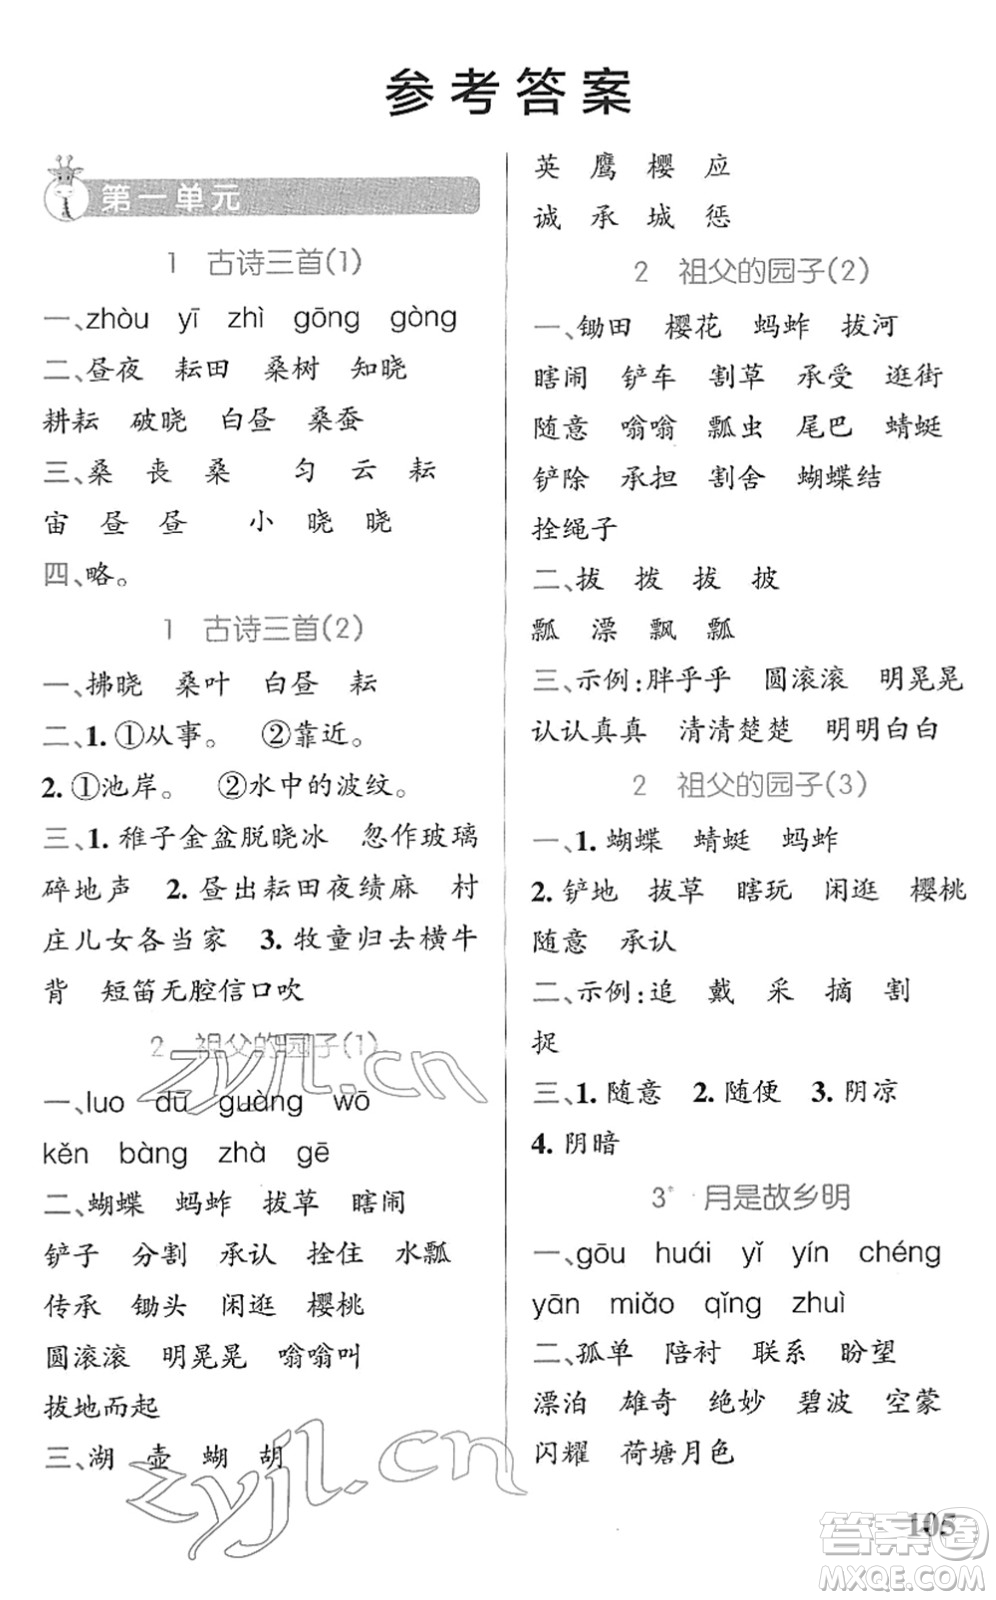 参考答案
第一单元
1 古诗三首(1)
一、zhòu yī zhì gōng gòng
二、昼夜 耘田 桑树 知晓
耕耘 破晓 白昼 桑蚕
三、桑 丧 桑 匀 云 耘
宙 昼 昼 小 晓 晓
四、略。
1 古诗三首(2)
一、拂晓 桑叶 白昼 耘
二、1. ①从事。 ②靠近。
2. ①池岸。 ②水中的波纹。
三、1. 稚子金盆脱晓冰 忽作玻璃
碎地声 2. 昼出耘田夜绩麻 村
庄儿女各当家 3. 牧童归去横牛
背 短笛无腔信口吹
2 祖父的园子(1)
一、luo dū guàng wō
kěn bàng zhà gē
二、蝴蝶 蚂蚱 拔草 瞎闹
铲子 分割 承认 拴住 水瓢
传承 锄头 闲逛 樱桃
圆滚滚 明晃晃 嗡嗡叫
拔地而起
三、湖 壶 蝴 胡
英 鹰 樱 应
诚 承 城 惩
2 祖父的园子(2)
一、锄田 樱花 蚂蚱 拔河
瞎闹 铲车 割草 承受 逛街
随意 嗡嗡 瓢虫 尾巴 蜻蜓
铲除 承担 割舍 蝴蝶结
拴绳子
二、拔 拨 拔 披
瓢 漂 飘 瓢
三、示例:胖乎乎 圆滚滚 明晃晃
认认真真 清清楚楚 明明白白
2 祖父的园子(3)
一、1. 蝴蝶 蜻蜓 蚂蚱
2. 铲地 拔草 瞎玩 闲逛 樱桃
随意 承认
二、示例:追 戴 采 摘 割
捉
三、1. 随意 2. 随便 3. 阴凉
4. 阴暗
3* 月是故乡明
一、gōu huái yǐ yín chéng
yān miǎo qǐng zhuì
二、孤单 陪衬 联系 盼望
漂泊 雄奇 绝妙 碧波 空蒙
闪耀 荷塘月色
105
zyjl.cn
zyjl.cn
答案圈
MXQE.COM